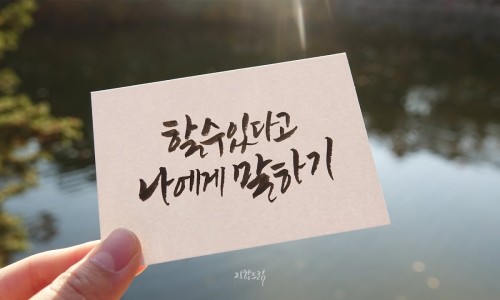 할수있다고
나에게 말하기